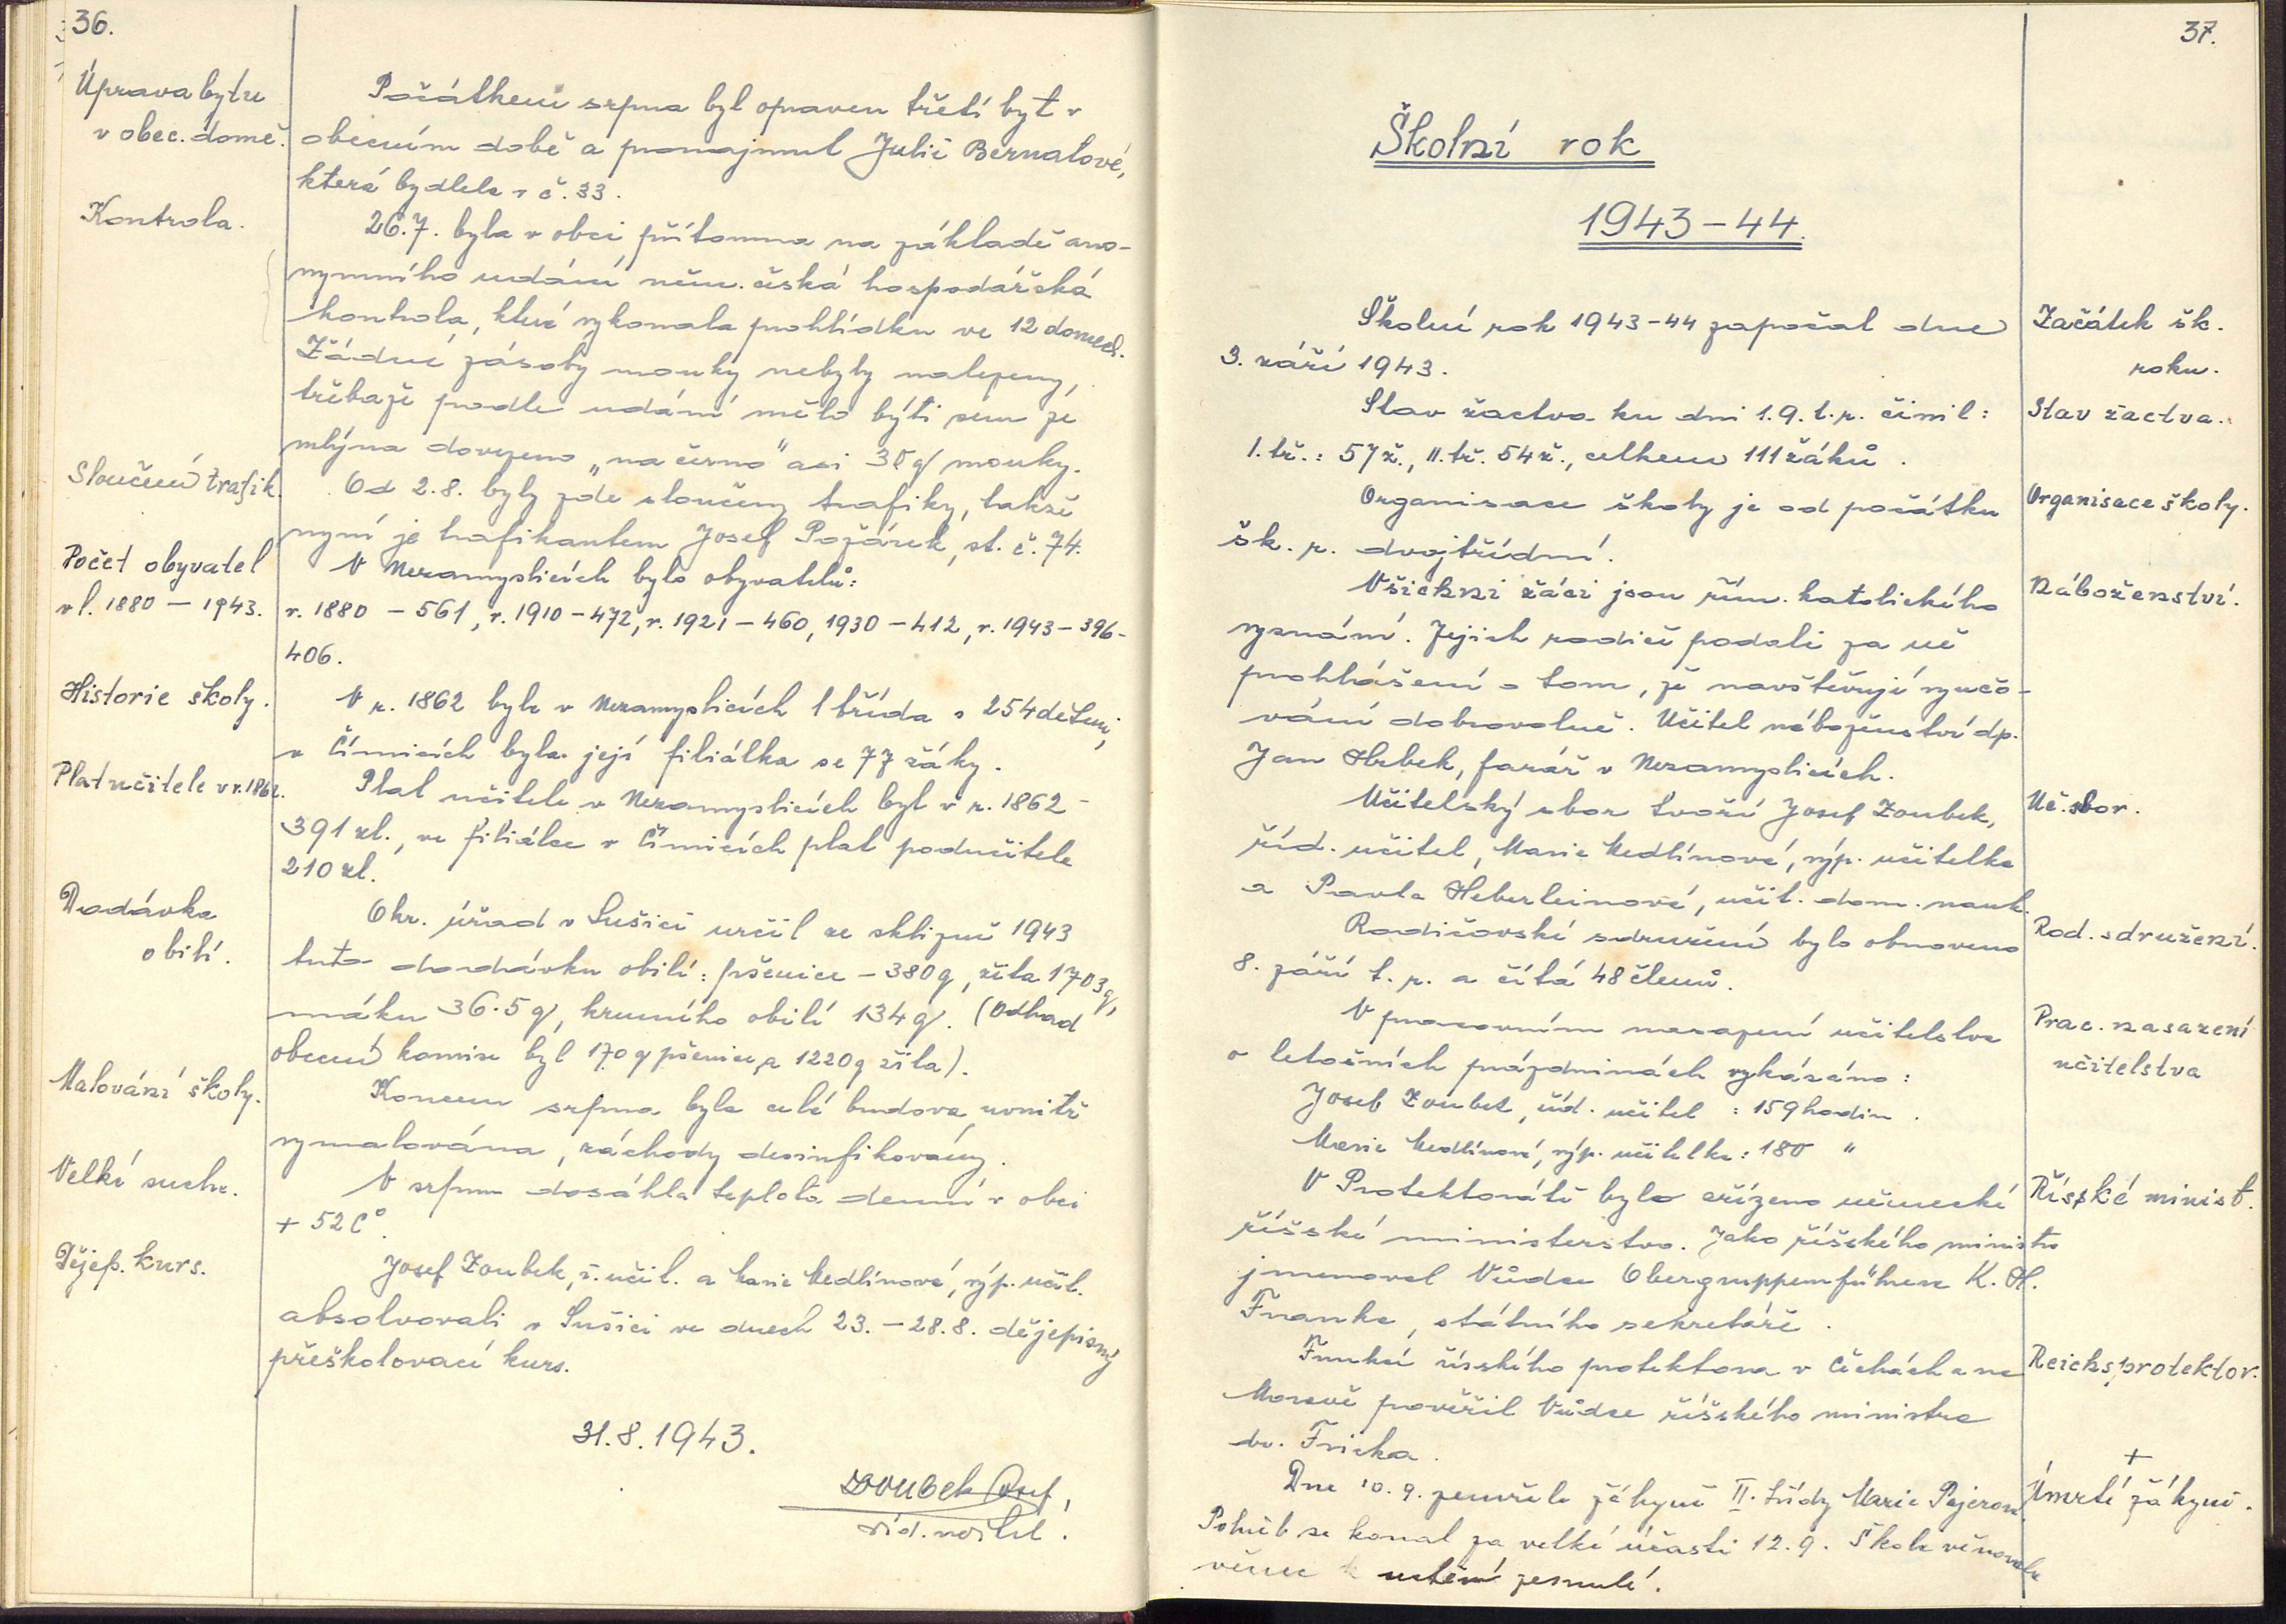 36.
Úprava bytu
v obec. domě.
Počátkem srpna byl opraven třetí byt v
obecním době a pronajmul Julii Bernatové,
která bydlela v č. 33.
Kontrola.
26.7. byla v obci přítomna na základě ano-
nymního udání něm. česká hospodářská
kontrola, která vykonala prohlídku ve 12 domech.
Žádné zásoby mouky nebyly nalezeny,
třebaže podle udání mělo býti sem ze
mlýna dovezeno „na černo" asi 30 q mouky.
Sloučení trafik.
Od 2.8. byly zde sloučeny trafiky, takže
nyní je trafikantem Josef Požárek, st. č. 74.
Počet obyvatel
v l. 1880 – 1943.
V Nezamyslicích bylo obyvatelů:
r. 1880 – 561, r. 1910 – 472, r. 1921 – 460, 1930 – 412, r. 1943 – 396 –
406.
Historie školy.
V r. 1862 byla v Nezamyslicích 1 třída s 254 dětmi,
v Čímicích byla její filiálka se 77 žáky.
Plat učitele v r. 1862.
Plat učitele v Nezamyslicích byl v r. 1862 –
391 zl., ve filiálce v Čímicích plat podučitele
210 zl.
Dodávka
obilí.
Okr. úřad v Sušici určil ze sklizně 1943
tuto dodávku obilí: pšenice – 380 q, žita 1703 q,
máku 36.5 q, krmného obilí 134 q. (Odhad
obecní komise byl 170 q pšenice a 1220 q žita).
Malování školy.
Koncem srpna byla celá budova uvnitř
vymalována, záchody desinfikovány.
Velké sucho.
V srpnu dosáhla teplota denní v obci
+ 52 C°.
Dějep. kurs.
Josef Zoubek, ř. učit. a Marie Medlínová, výp. učit.
absolvovali v Sušici ve dnech 23. – 28.8. dějepisný
přeškolovací kurs.
31.8.1943.
Zoubek Josef,
říd. učitel.
37.
Školní rok
1943 – 44.
Školní rok 1943-44 započal dne
3. září 1943.
Začátek šk.
roku.
Stav žactva ku dni 1.9. t.r. činil:
I. tř.: 57 ž., II. tř. 54 ž., celkem 111 žáků.
Stav žactva.
Organisace školy je od počátku
šk. r. dvojtřídní.
Organisace školy.
Všichni žáci jsou řím. katolického
vyznání. Jejich rodiče podali za ně
prohlášení o tom, že navštěvují vyučo-
vání dobrovolně. Učitel náboženství dp.
Jan Hrbek, farář v Nezamyslicích.
Náboženství.
Učitelský sbor tvoří Josef Zoubek,
říd. učitel, Marie Medlínová, výp. učitelka
a Pavla Heberleinová, učit. dom. nauk.
Uč. sbor.
Rodičovské sdružení bylo obnoveno
8. září t. r. a čítá 48 členů.
Rod. sdružení.
V pracovním nasazení učitelstva
o letošních prázdninách vykázáno:
Prac. nasazení
učitelstva
Josef Zoubek, říd. učitel : 159 hodin.
Marie Medlínová, výp. učitelka : 180 "
V Protektorátě bylo zřízeno německé
říšské ministerstvo. Jako říšského ministra
jmenoval Vůdce Obergruppenführera K. H.
Franka, státního sekretáře.
Říšské minist.
Funkcí říšského protektora v Čechách a na
Moravě pověřil Vůdce říšského ministra
dr. Fricka.
Reichsprotektor.
Dne 10. 9. zemřela žákyně II. třídy Marie Pajerová.
Pohřeb se konal za velké účasti 12. 9. Škola věnovala
věnec k uctění zesnulé.
+
Úmrtí žákyně.